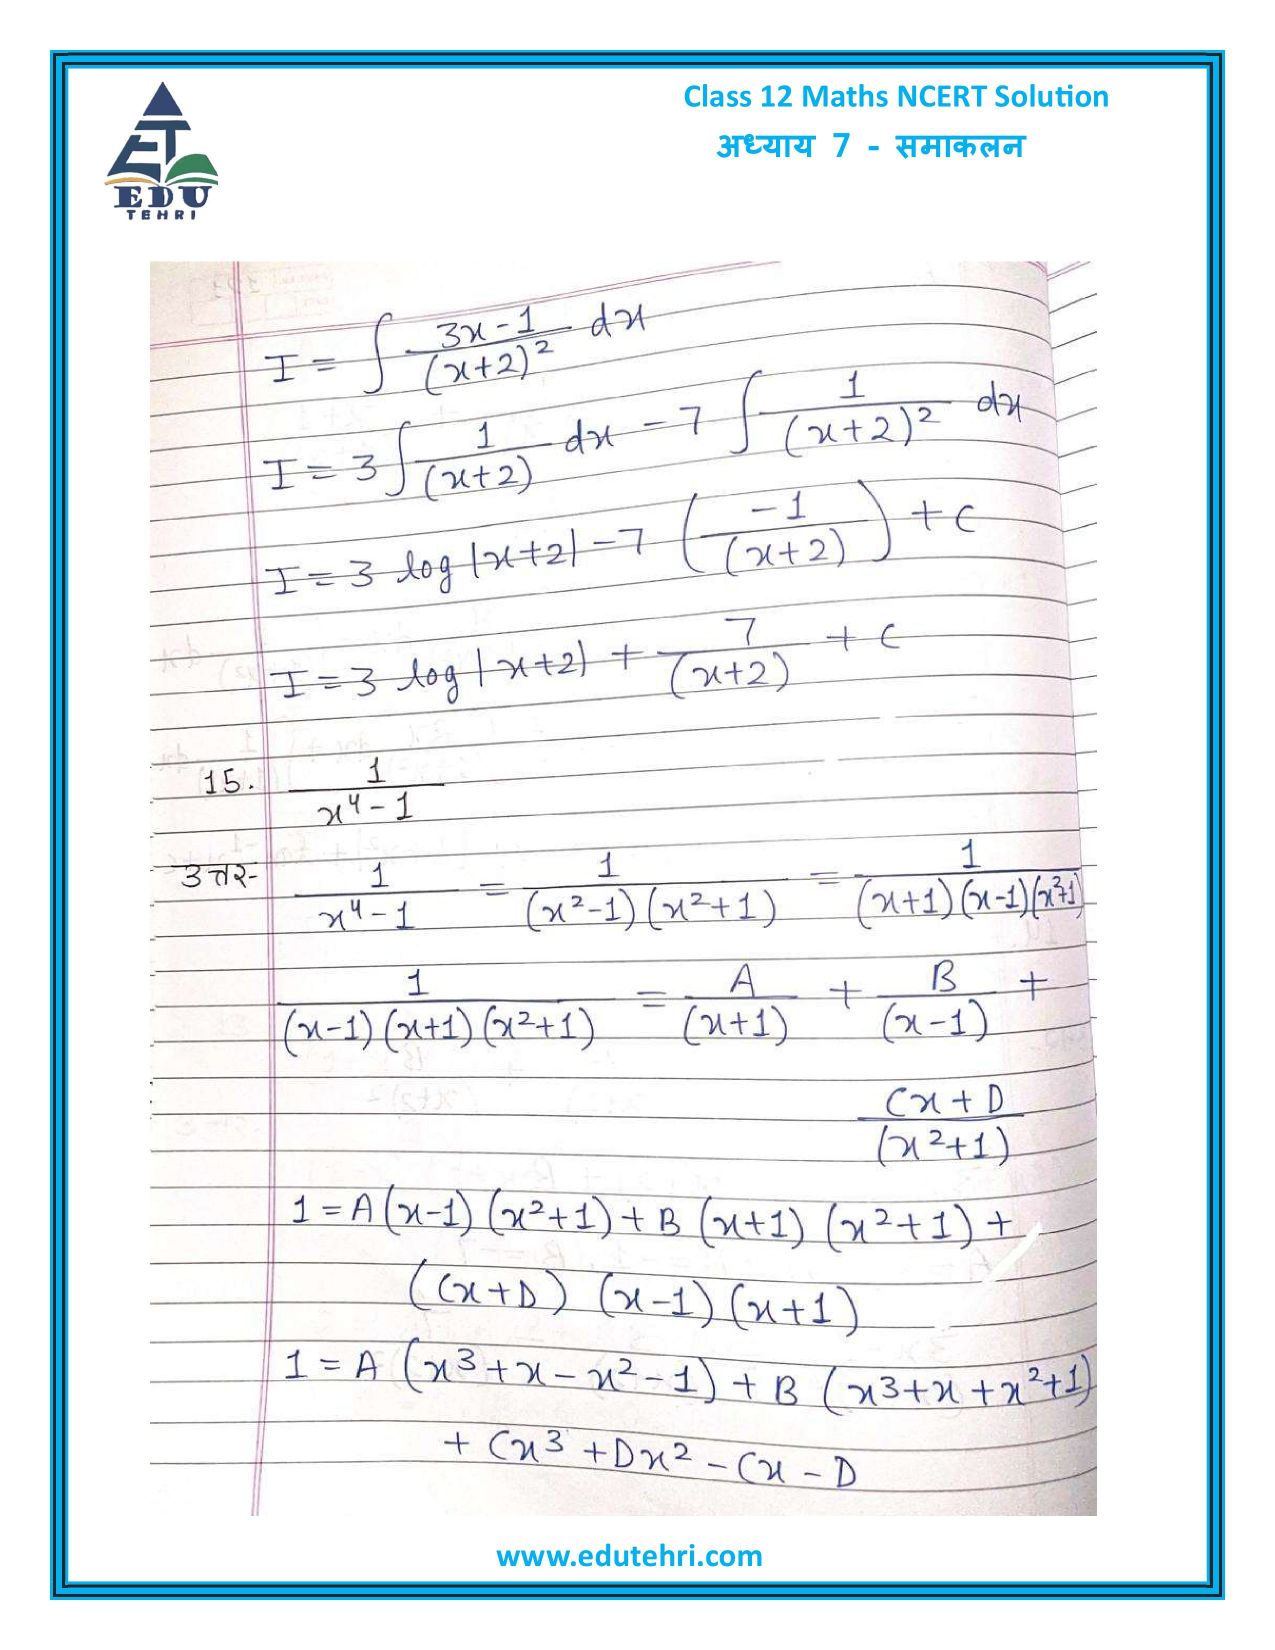 Class 12 Maths NCERT Solution
अध्याय 7 - समाकलन
EDU
TEHRI
I = ∫ (3x-1)/(x+2)² dx
I = 3 ∫ 1/(x+2) dx - 7 ∫ 1/(x+2)² dx
I = 3 log|x+2| - 7 (-1/(x+2)) + C
I = 3 log|x+2| + 7/(x+2) + C
15. 1/(x⁴-1)
उत्तर- 1/(x⁴-1) = 1/((x²-1)(x²+1)) = 1/((x+1)(x-1)(x²+1))
1/((x-1)(x+1)(x²+1)) = A/(x+1) + B/(x-1) +
(Cx+D)/(x²+1)
1 = A(x-1)(x²+1) + B(x+1)(x²+1) +
(Cx+D)(x-1)(x+1)
1 = A(x³+x-x²-1) + B(x³+x+x²+1)
+ Cx³ + Dx² - Cx - D
www.edutehri.com